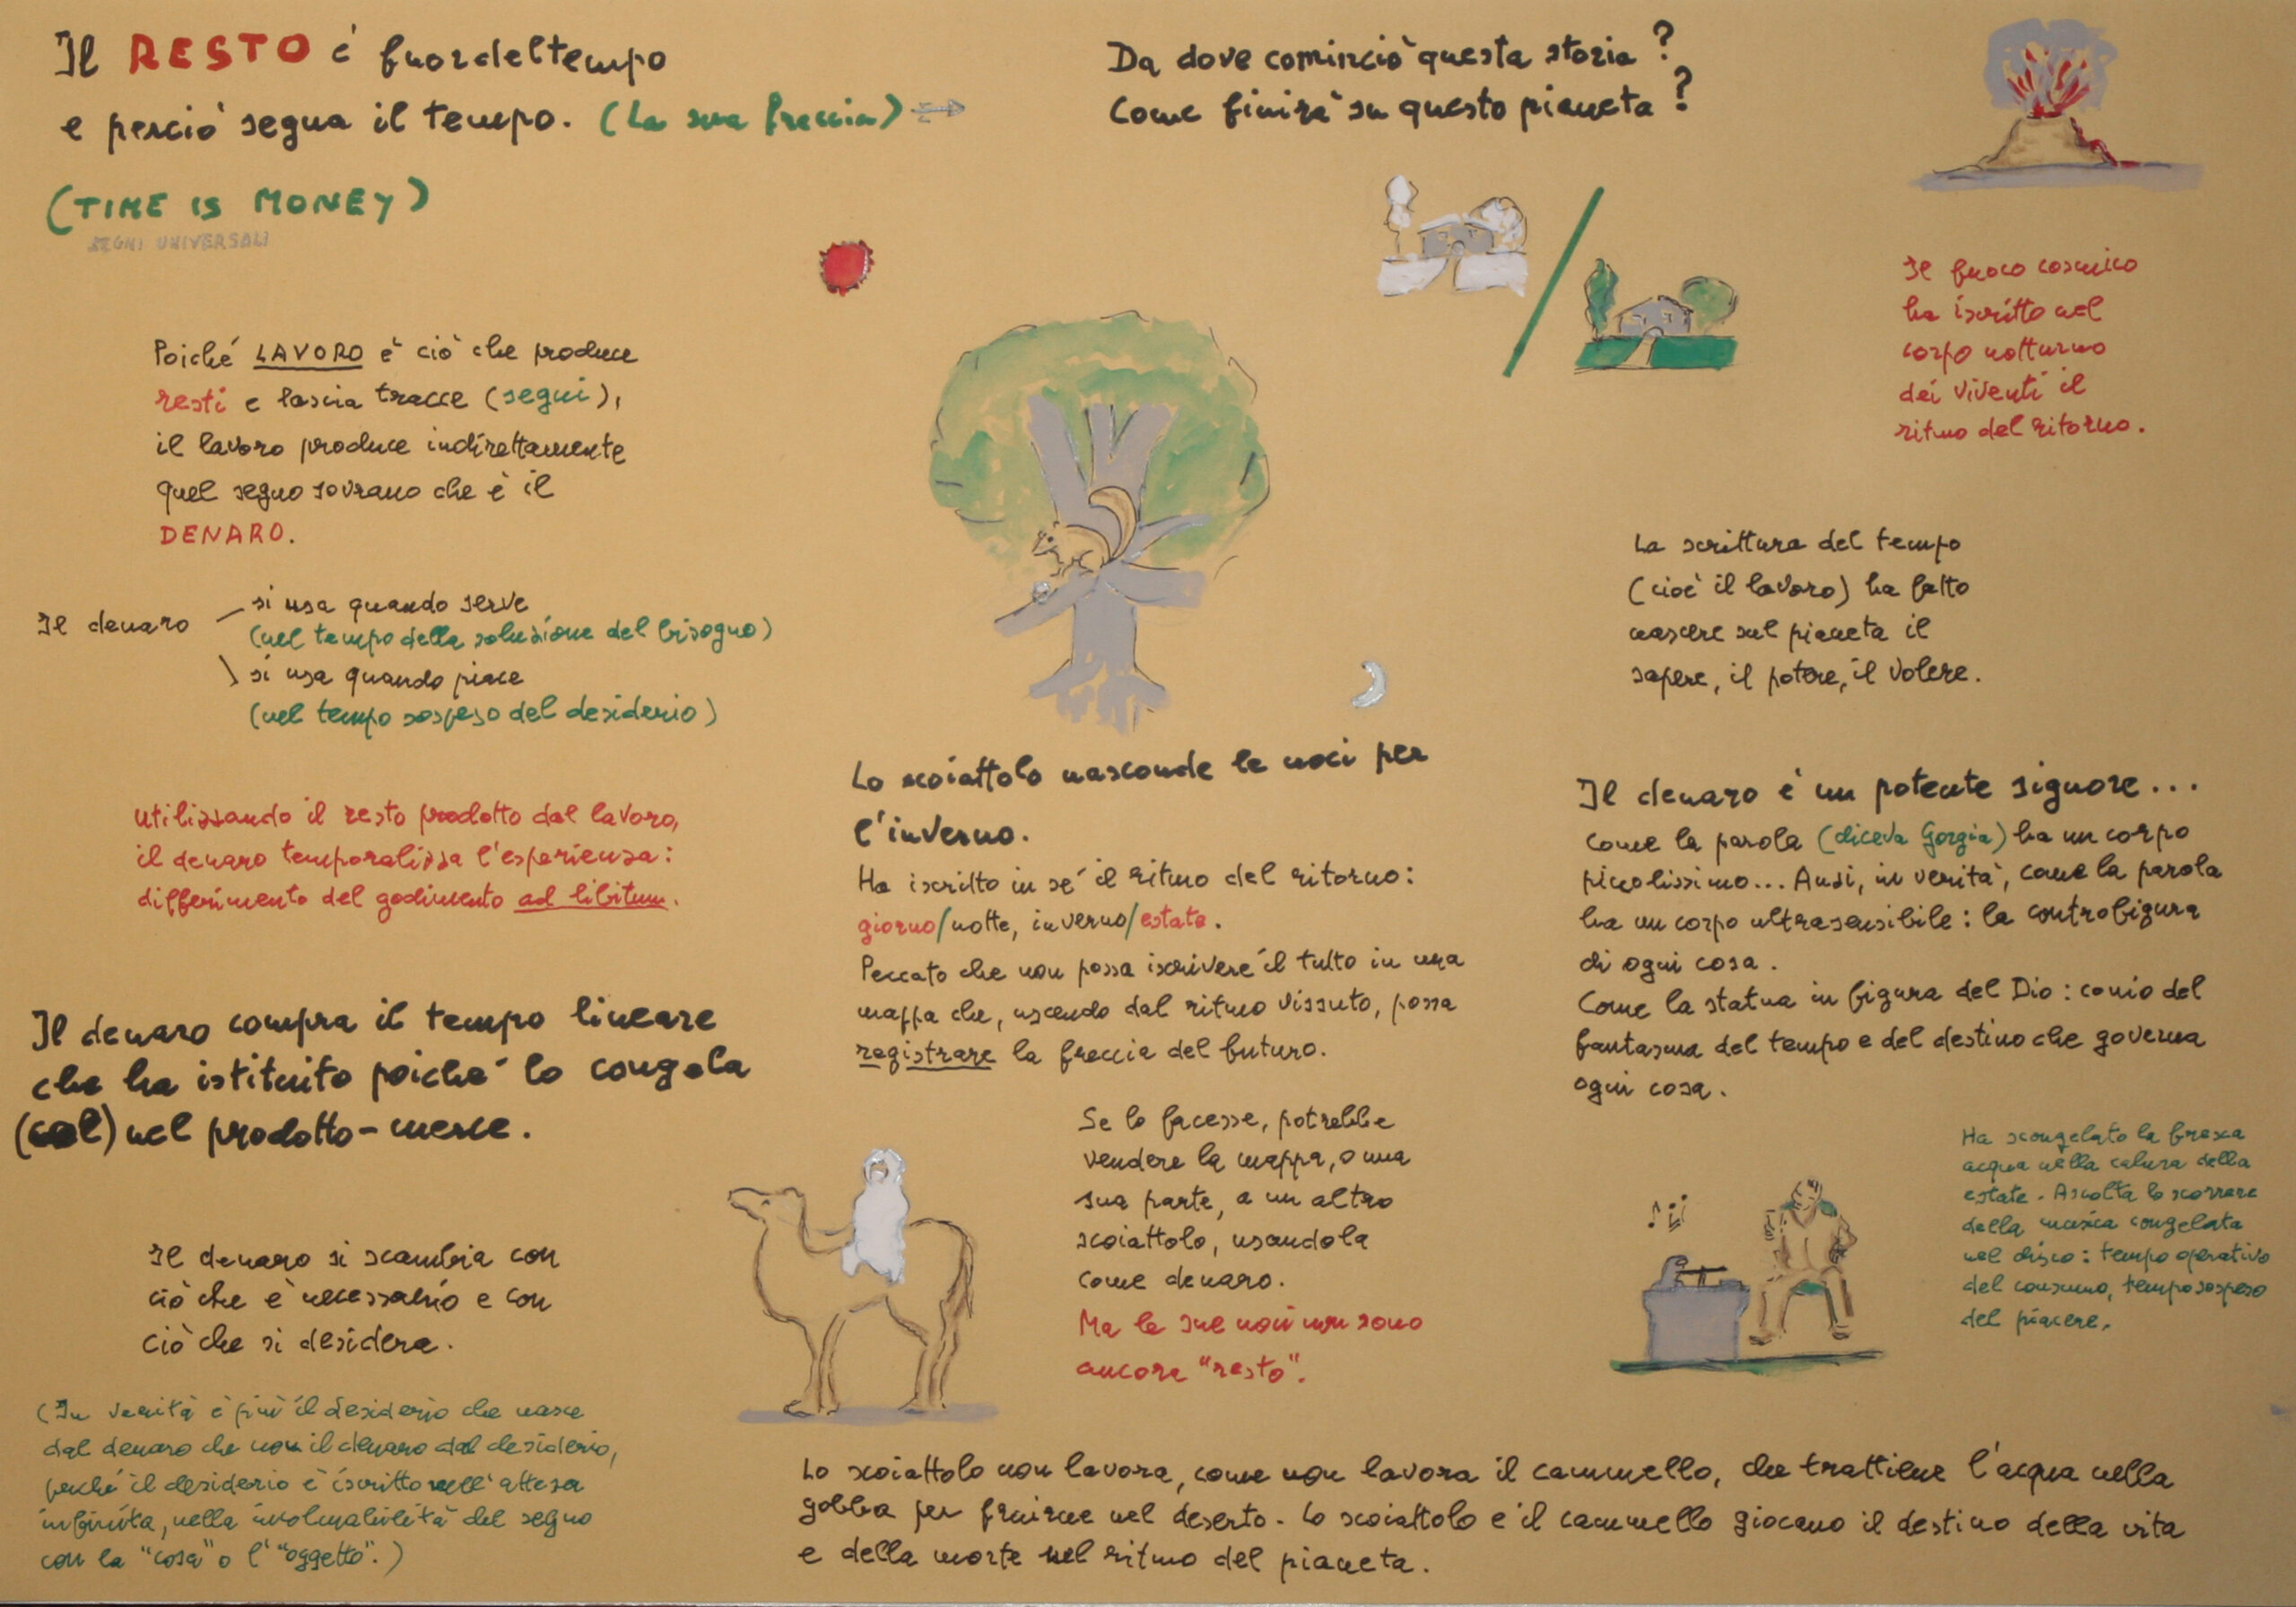 Il RESTO è fuor del tempo
e perciò segna il tempo. (La sua freccia)
(TIME IS MONEY)
SEGNI UNIVERSALI
Poiché LAVORO è ciò che produce
resti e lascia tracce (segni),
il lavoro produce indirettamente
quel segno sovrano che è il
DENARO.
Il denaro
si usa quando serve
(nel tempo della soluzione del bisogno)
si usa quando piace
(nel tempo sospeso del desiderio)
Utilizzando il resto prodotto dal lavoro,
il denaro temporalizza l'esperienza:
differimento del godimento ad libitum.
Il denaro compra il tempo lineare
che ha istituito poiché lo congela
nel prodotto-merce.
Il denaro si scambia con
ciò che è necessario e con
ciò che si desidera.
(In verità è più il desiderio che nasce
dal denaro che non il denaro dal desiderio,
perché il desiderio è iscritto nell'attesa
infinita, nella del segno
con la "cosa" o l'"oggetto".)
Da dove cominciò questa storia?
Come finirà su questo pianeta?
Lo scoiattolo nasconde le noci per
l'inverno.
Ha iscritto in sé il ritmo del ritorno:
giorno/notte, inverno/estate.
Peccato che non possa iscrivere il tutto in una
mappa che, uscendo dal ritmo vissuto, possa
registrare la freccia del futuro.
Se lo facesse, potrebbe
vendere la mappa, o una
sua parte, a un altro
scoiattolo, usandola
come denaro.
Ma le sue noci non sono
ancora "resto".
Lo scoiattolo non lavora, come non lavora il cammello, che trattiene l'acqua nella
gobba per fruirne nel deserto. Lo scoiattolo e il cammello giocano il destino della vita
e della morte nel ritmo del pianeta.
Il fuoco cosmico
ha iscritto nel
corpo notturno
dei viventi il
ritmo del ritorno.
La scrittura del tempo
(cioè il lavoro) ha fatto
nascere sul pianeta il
sapere, il potere, il volere.
Il denaro è un potente signore...
come la parola (diceva Gorgia) ha un corpo
piccolissimo... Anzi, in verità, come la parola
ha un corpo ultrasensibile: la controfigura
di ogni cosa.
Come la statua in figura del Dio: conio del
fantasma del tempo e del destino che governa
ogni cosa.
Ha scongelato la fresca
acqua nella calura della
estate. Ascolta lo scorrere
della musica congelata
nel disco: tempo operativo
del consumo, tempo sospeso
del piacere.